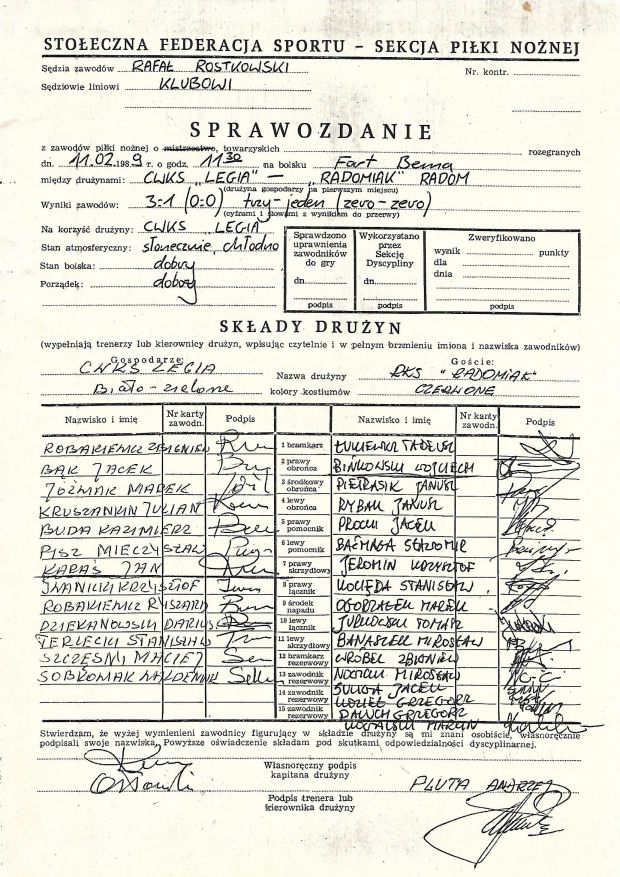 STOŁECZNA FEDERACJA SPORTU – SEKCJA PIŁKI NOŻNEJ
Sędzia zawodów RAFAŁ ROSTKOWSKI
Nr. kontr.
Sędziowie liniowi KLUBOWI
SPRAWOZDANIE
z zawodów piłki nożnej o mistrzostwo, towarzyskich rozegranych
dn. 11.02.1989 r. o godz. 11 30 na boisku Fort Bema
między drużynami: CWKS „LEGIA" — „RADOMIAK" RADOM
(drużyna gospodarzy na pierwszym miejscu)
Wyniki zawodów: 3:1 (0:0) trzy-jeden (zero-zero)
(cyframi i słowami z wynikiem do przerwy)
Na korzyść drużyny: CWKS „LEGIA"
Stan atmosferyczny: słonecznie, chłodno
Stan boiska: dobry
Porządek: dobry
Sprawdzono uprawnienia zawodników do gry
dn.
podpis
Wykorzystano przez Sekcję Dyscypliny
dn.
podpis
Zweryfikowano
wynik punkty
dla
dnia
podpis
SKŁADY DRUŻYN
(wypełniają trenerzy lub kierownicy drużyn, wpisując czytelnie i w pełnym brzmieniu imiona i nazwiska zawodników)
Gospodarze: Goście:
CWKS LEGIA Nazwa drużyny RKS "RADOMIAK"
Biało-zielone kolory kostiumów CZERWONE
Nazwisko i imię Nr karty zawodn. Podpis Nazwisko i imię Nr karty zawodn. Podpis
ROBAKIEWICZ ZBIGNIEW 1 bramkarz
BĄK JACEK 2 prawy obrońca BIŃKOWSKI WOJCIECH
JÓŹWIAK MAREK 3 środkowy obrońca PIETRASIK JANUSZ
KRUSZANKIN JULIAN 4 lewy obrońca RYBAK JANUSZ
BUDA KAZIMIERZ 5 prawy pomocnik PROCKI JACEK
PISZ MIECZYSŁAW 6 lewy pomocnik BAŚMAGA SŁAWOMIR
KARAŚ JAN 7 prawy skrzydłowy JEROMIN KRZYSZTOF
IWANICKI KRZYSZTOF 8 prawy łącznik KOCIĘDA STANISŁAW
ROBAKIEWICZ RYSZARD 9 środek napadu OGORZAŁEK MAREK
DZIEKANOWSKI DARIUSZ 10 lewy łącznik
TERLECKI STANISŁAW 11 lewy skrzydłowy BANASZEK MIROSŁAW
SZCZĘSNY MACIEJ 12 bramkarz rezerwowy WRÓBEL ZBIGNIEW
13 zawodnik rezerwowy MIROSŁAW
14 zawodnik rezerwowy JACEK
GRZEGORZ
15 zawodnik rezerwowy GRZEGORZ
MARCIN
Stwierdzam, że wyżej wymienieni zawodnicy figurujący w składzie drużyny są mi znani osobiście, własnoręcznie
podpisali swoje nazwiska. Powyższe oświadczenie składam pod skutkami odpowiedzialności dyscyplinarnej.
Własnoręczny podpis
kapitana drużyny
PLUTA ANDRZEJ
Podpis trenera lub
kierownika drużyny